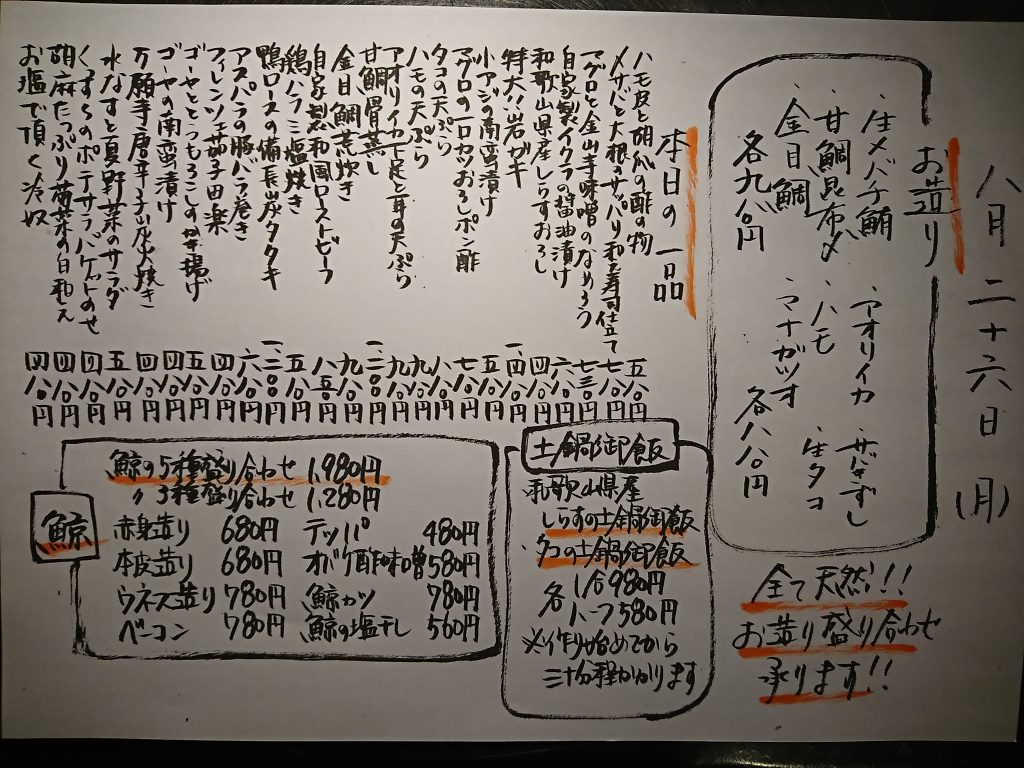 八月二十六日(月)
お造り
・生メバチ鮪
・甘鯛昆布〆
・金目鯛
各九八〇円
・アオリイカ
・ハモ
・マナガツオ
・生タコ
各八八〇円
全て天然!!
お造り盛り合わせ
承ります!!
本日の一品
ハモ皮と胡瓜の酢の物 五八〇円
〆サバと大根のサッパリ和え寿司仕立て 七八〇円
マグロと金山寺味噌のなめろう 七三〇円
自家製イクラの醤油漬け 六八〇円
和歌山県産しらすおろし 四八〇円
特大!!岩ガキ 一、四八〇円
小アジの南蛮漬け 五八〇円
マグロの一口カツおろしポン酢 七八〇円
タコの天ぷら 八八〇円
ハモの天ぷら 九八〇円
アオリイカ下足と耳の天ぷら 九八〇円
甘鯛骨蒸し 一、二〇〇円
金目鯛煮炊き 九八〇円
自家製和風ローストビーフ 八五〇円
鶏ハラミ塩焼き 五八〇円
鴨ロースの備長炭タタキ 一、三〇〇円
アスパラの豚バラ巻き 六八〇円
フィレンツェ茄子田楽 四八〇円
ゴーヤととうもろこしのかき揚げ 五八〇円
ゴーヤの南蛮漬け 四八〇円
万願寺唐辛子炭火焼き 四八〇円
水なすと夏野菜のサラダ 五八〇円
くずし のポテサラバケットのせ 四八〇円
胡麻たっぷり 菜の白和え 四八〇円
お塩で頂く冷奴 四八〇円
土鍋御飯
和歌山県産
しらすの土鍋御飯
・タコの土鍋御飯
各 1合980円
1ハーフ580円
※作り始めてから
三十分程かかります
鯨
鯨の5種盛り合わせ 1,980円
〃3種盛り合わせ 1,280円
赤身造り 680円 テッパ 480円
本皮造り 680円 オバケ酢味噌 580円
ウネス造り 780円 鯨カツ 780円
ベーコン 780円 鯨の塩干し 560円